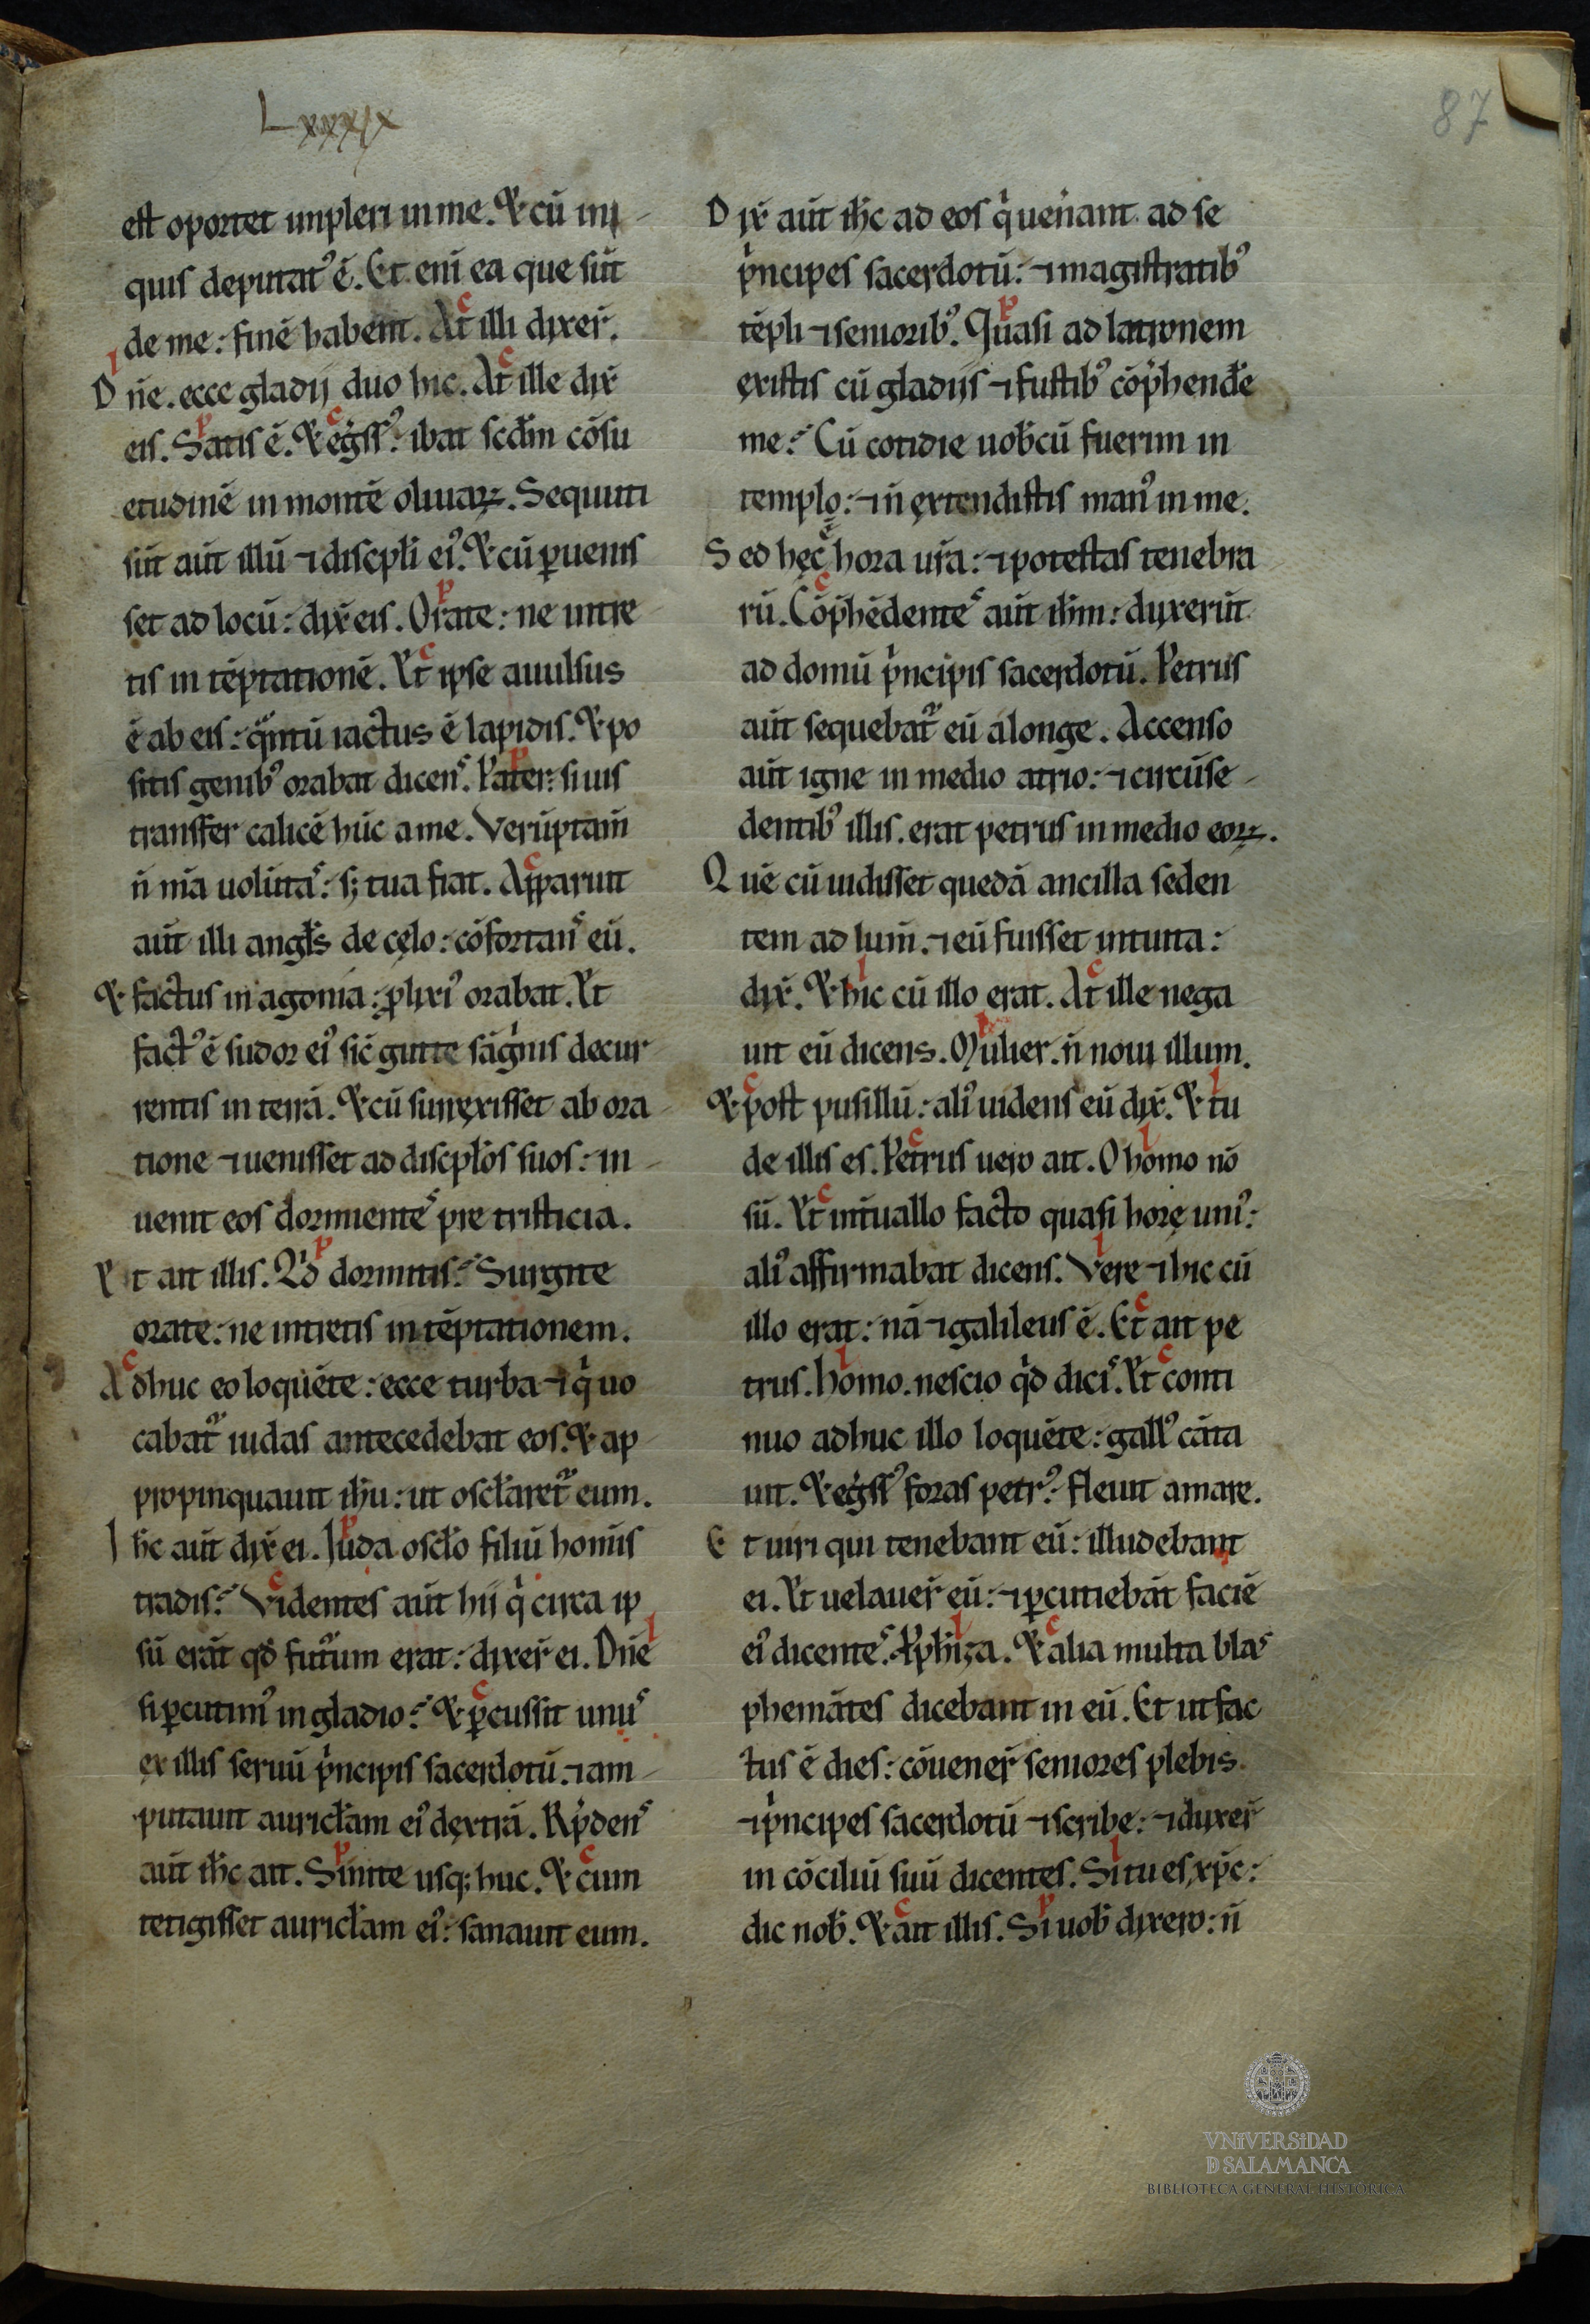 Lxxxix
87
est oportet inpleri in me. & cū ini-
quis deputatꝰ ē. Et eni ea que sūt
de me: finē habent. At illi dixer̄.
Dn̄e. ecce gladij duo hic. At ille dix̄
eis. Satis ē. & eg̃ssꝰ: ibat scdm̄ cōsu
etudinē in montē oliuaꝝ. Secuti
sūt aūt illū ⁊ discipli eiꝰ. & cū ꝑuenis
set ad locū: dix̄ eis. Orate: ne intre-
tis in tēptationē. Et ipse auulsus
ē ab eis: qͣntū iactus ē lapidis. & po
sitis genibꝰ orabat dicens. Pater: si uis
transfer calicē hūc a me. Verūptam̄
n̄ m̄a uolūtas: s; tua fiat. Apparuit
aūt illi angl̄s de cęlo: cōfortans eū.
& factus in agonia: ꝓlixiꝰ orabat. Et
factꝰ ē sudor eiꝰ sic̄ gutte sāguinis decur
rentis in terrā. & cū surrexisset ab ora-
tione ⁊ uenisset ad discipl̄os suos: in-
uenit eos dormientes pre tristicia.
Et ait illis. Qͥd dormitis? Surgite
orate: ne intretis in tēptationem.
Adhuc eo loquēte: ecce turba ⁊ qͥ uo
cabatᷣ iudas antecedebat eos. & ap-
propinquauit ih̄u: ut oscl̄aretᷣ eum.
Ih̄c aūt dix̄ ei. Iuda oscl̄o filiū hoīnis
tradis? Videntes aūt hii qͥ circa ip
sū erāt qd̄ futurum erat: dixer̄ ei. Dn̄e
si ꝑcutimꝰ in gladio? & ꝑcussit unus
ex illis seruū pͥncipis sacerdotū. ⁊ am-
putauit auricl̄am eiꝰ dextrā. Rn̄dens
aūt ih̄c ait. Sinite usq; huc. & cum
tetigisset auricl̄am eiꝰ: sanauit eum.
Dix̄ aūt ih̄c ad eos qͥ uenerant ad se
pͥncipes sacerdotū: ⁊ magistratibꝰ
tēpli ⁊ senioribꝰ. Quasi ad latronem
existis cū gladiis ⁊ fustibꝰ cōp̄hendr̄e
me? Cū cotidie uob̄cū fuerim in
templo: ⁊ n̄ extendistis manꝰ in me.
Sed hęc ē hora ur̄a: ⁊ potestas tenebra-
rū. Cōp̄hēdentes aūt ih̄m: duxerūt
ad domū pͥncipis sacerdotū. Petrus
aūt sequebatᷣ eū a longe. Accenso
aūt igne in medio atrio: ⁊ circūse-
dentibꝰ illis. erat petrus in medio eoꝝ.
Quē cū uidisset quedā ancilla seden
tem ad lum̄. ⁊ eū fuisset intuita:
dix̄. & hic cū illo erat. At ille nega
uit eū dicens. Mulier. n̄ noui illum.
& post pusillū: aliꝰ uidens eū dix̄. & tu
de illis es. Petrus uero ait. O homo nō
sū. Et int̄uallo facto quasi horę uniꝰ:
aliꝰ affirmabat dicens. Vere ⁊ hic cū
illo erat: nā ⁊ galileus ē. Et ait pe
trus. homo. nescio qͥd dicis. Et conti
nuo adhuc illo loquēte: gallꝰ cāta
uit. & eg̃ssꝰ foras petrꝰ: fleuit amare.
Et uiri qui tenebant eū: illudebant
ei. Et uelauer̄ eū: ⁊ ꝑcutiebāt faciē
eiꝰ dicentes. Ꝓphiza. & alia multa blas
phemātes dicebant in eū. Et ut fac
tus ē dies: cōuener̄ seniores plebis
⁊ pͥncipes sacerdotū ⁊ scribe: ⁊ duxer̄
in cōciliū suū dicentes. Si tu es xp̄c:
dic nob̄. & ait illis. Si uob̄ dixero: n̄
VNiVERSiDAD
D SALAMANCA
BIBLIOTECA GENERAL HISTÓRICA